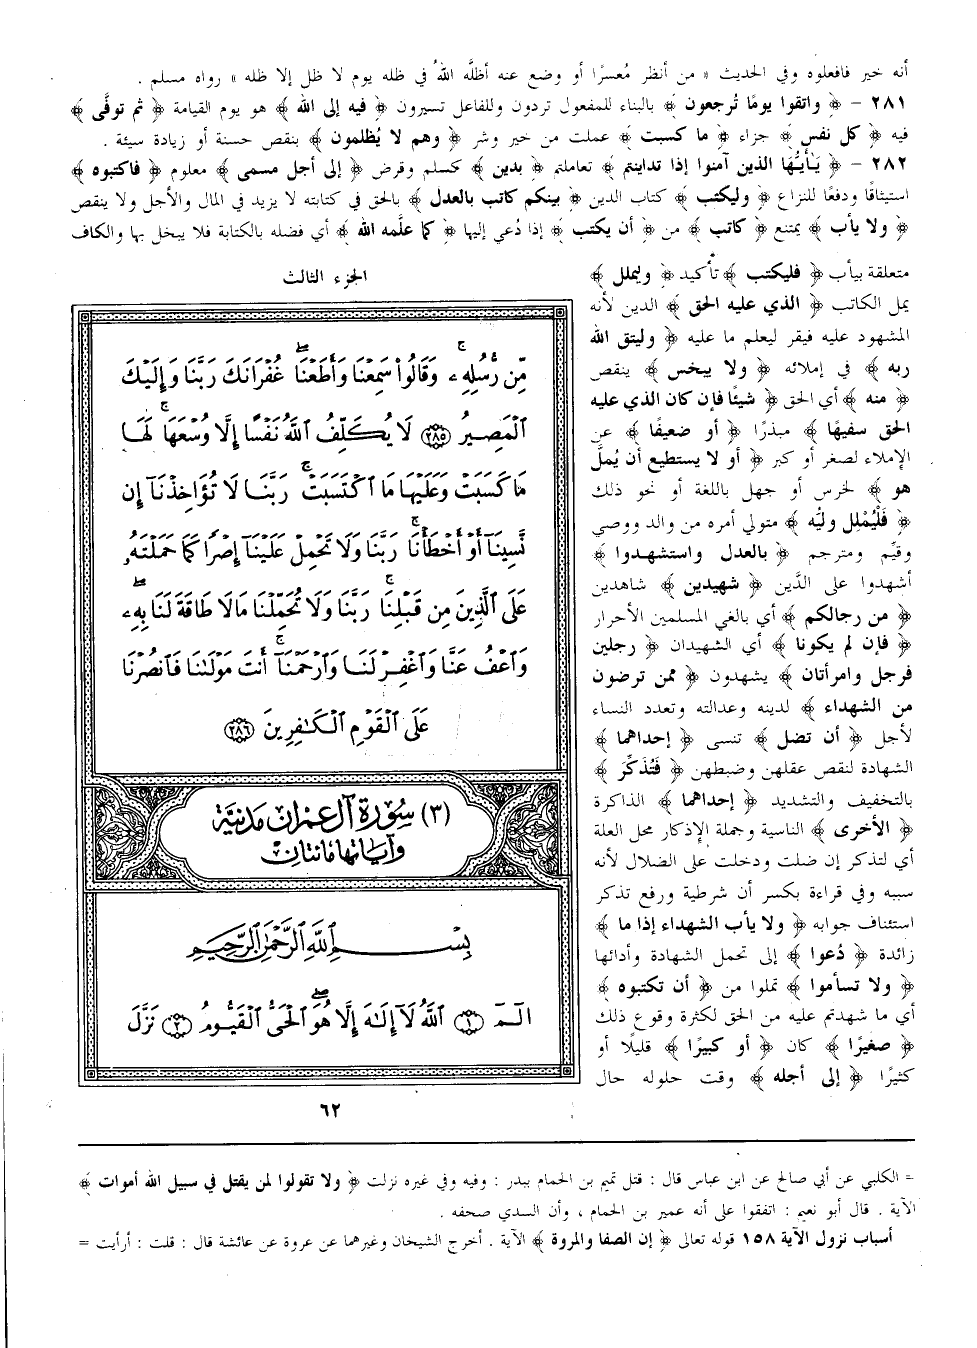 أنه خير فافعلوه وفي الحديث « من أنظر مُعسرًا أو وضع عنه أظلَّه اللهُ في ظله يوم لا ظل إلا ظله » رواه مسلم .
٢٨١ - ﴿ واتقوا يومًا تُرجعون ﴾ بالبناء للمفعول تردون وللفاعل تسيرون ﴿ فيه إلى الله ﴾ هو يوم القيامة ﴿ ثم توفَّى ﴾
فيه ﴿ كل نفس ﴾ جزاء ﴿ ما كسبت ﴾ عملت من خير وشر ﴿ وهم لا يُظلمون ﴾ بنقص حسنة أو زيادة سيئة .
٢٨٢ - ﴿ يَـٰأَيُّهَا الذين آمنوا إذا تداينتم ﴾ تعاملتم ﴿ بدين ﴾ كسلم وقرض ﴿ إلى أجل مسمى ﴾ معلوم ﴿ فاكتبوه ﴾
استيثاقًا ودفعًا للنزاع ﴿ وليكتب ﴾ كتاب الدين ﴿ بينكم كاتب بالعدل ﴾ بالحق في كتابته لا يزيد في المال والأجل ولا ينقص
﴿ ولا يأب ﴾ يمتنع ﴿ كاتب ﴾ من ﴿ أن يكتب ﴾ إذا دُعي إليها ﴿ كما علَّمه الله ﴾ أي فضله بالكتابة فلا يبخل بها والكاف
متعلقة بيأب ﴿ فليكتب ﴾ تأكيد ﴿ وليملل ﴾
يمل الكاتب ﴿ الذي عليه الحق ﴾ الدين لأنه
المشهود عليه فيقر ليعلم ما عليه ﴿ وليتق الله
ربه ﴾ في إملائه ﴿ ولا يبخس ﴾ ينقص
﴿ منه ﴾ أي الحق ﴿ شيئًا فإن كان الذي عليه
الحق سفيهًا ﴾ مبذرًا ﴿ أو ضعيفًا ﴾ عن
الإملاء لصغر أو كبر ﴿ أو لا يستطيع أن يُملَّ
هو ﴾ لخرس أو جهل باللغة أو نحو ذلك
﴿ فَلْيُمْلل وليُّه ﴾ متولي أمره من والد ووصي
وقيِّم ومترجم ﴿ بالعدل واستشهدوا ﴾
أشهدوا على الدَّين ﴿ شهيدين ﴾ شاهدين
﴿ من رجالكم ﴾ أي بالغي المسلمين الأحرار
﴿ فإن لم يكونا ﴾ أي الشهيدان ﴿ رجلين
فرجل وامرأتان ﴾ يشهدون ﴿ ممن ترضون
من الشهداء ﴾ لدينه وعدالته وتعدد النساء
لأجل ﴿ أن تضل ﴾ تنسى ﴿ إحداهما ﴾
الشهادة لنقص عقلهن وضبطهن ﴿ فَتُذَكِّرَ ﴾
بالتخفيف والتشديد ﴿ إحداهما ﴾ الذاكرة
﴿ الأخرى ﴾ الناسية وجملة الإذكار محل العلة
أي لتذكر إن ضلت ودخلت على الضلال لأنه
سببه وفي قراءة بكسر أن شرطية ورفع تذكر
استئناف جوابه ﴿ ولا يأب الشهداء إذا ما ﴾
زائدة ﴿ دُعوا ﴾ إلى تحمل الشهادة وأدائها
﴿ ولا تسأموا ﴾ تملوا من ﴿ أن تكتبوه ﴾
أي ما شهدتم عليه من الحق لكثرة وقوع ذلك
﴿ صغيرًا ﴾ كان ﴿ أو كبيرًا ﴾ قليلًا أو
كثيرًا ﴿ إلى أجله ﴾ وقت حلوله حال
الجزء الثالث
مِّن رُّسُلِهِۦ ۚ وَقَالُوا۟ سَمِعْنَا وَأَطَعْنَا ۖ غُفْرَانَكَ رَبَّنَا وَإِلَيْكَ
ٱلْمَصِيرُ ٢٨٥ لَا يُكَلِّفُ ٱللَّهُ نَفْسًا إِلَّا وُسْعَهَا ۚ لَهَا
مَا كَسَبَتْ وَعَلَيْهَا مَا ٱكْتَسَبَتْ ۗ رَبَّنَا لَا تُؤَاخِذْنَآ إِن
نَّسِينَآ أَوْ أَخْطَأْنَا ۚ رَبَّنَا وَلَا تَحْمِلْ عَلَيْنَآ إِصْرًا كَمَا حَمَلْتَهُۥ
عَلَى ٱلَّذِينَ مِن قَبْلِنَا ۚ رَبَّنَا وَلَا تُحَمِّلْنَا مَا لَا طَاقَةَ لَنَا بِهِۦ ۖ
وَٱعْفُ عَنَّا وَٱغْفِرْ لَنَا وَٱرْحَمْنَآ ۚ أَنتَ مَوْلَىٰنَا فَٱنصُرْنَا
عَلَى ٱلْقَوْمِ ٱلْكَـٰفِرِينَ ٢٨٦
(٣) سُورَة آل عِمْرَان مَدَنِيَّة
وآياتها مائتان
بِسْمِ ٱللَّهِ ٱلرَّحْمَـٰنِ ٱلرَّحِيمِ
الٓمٓ ١ ٱللَّهُ لَآ إِلَـٰهَ إِلَّا هُوَ ۖ ٱلْحَىُّ ٱلْقَيُّومُ ٢ نَزَّلَ
٦٢
= الكلبي عن أبي صالح عن ابن عباس قال : قتل تميم بن الحمام ببدر : وفيه وفي غيره نزلت ﴿ ولا تقولوا لمن يقتل في سبيل الله أموات ﴾
الآية . قال أبو نعيم : اتفقوا على أنه عمير بن الحمام ، وأن السدي صحفه .
أسباب نزول الآية ١٥٨ قوله تعالى ﴿ إن الصفا والمروة ﴾ الآية . أخرج الشيخان وغيرهما عن عروة عن عائشة قال : قلت : أرأيت =